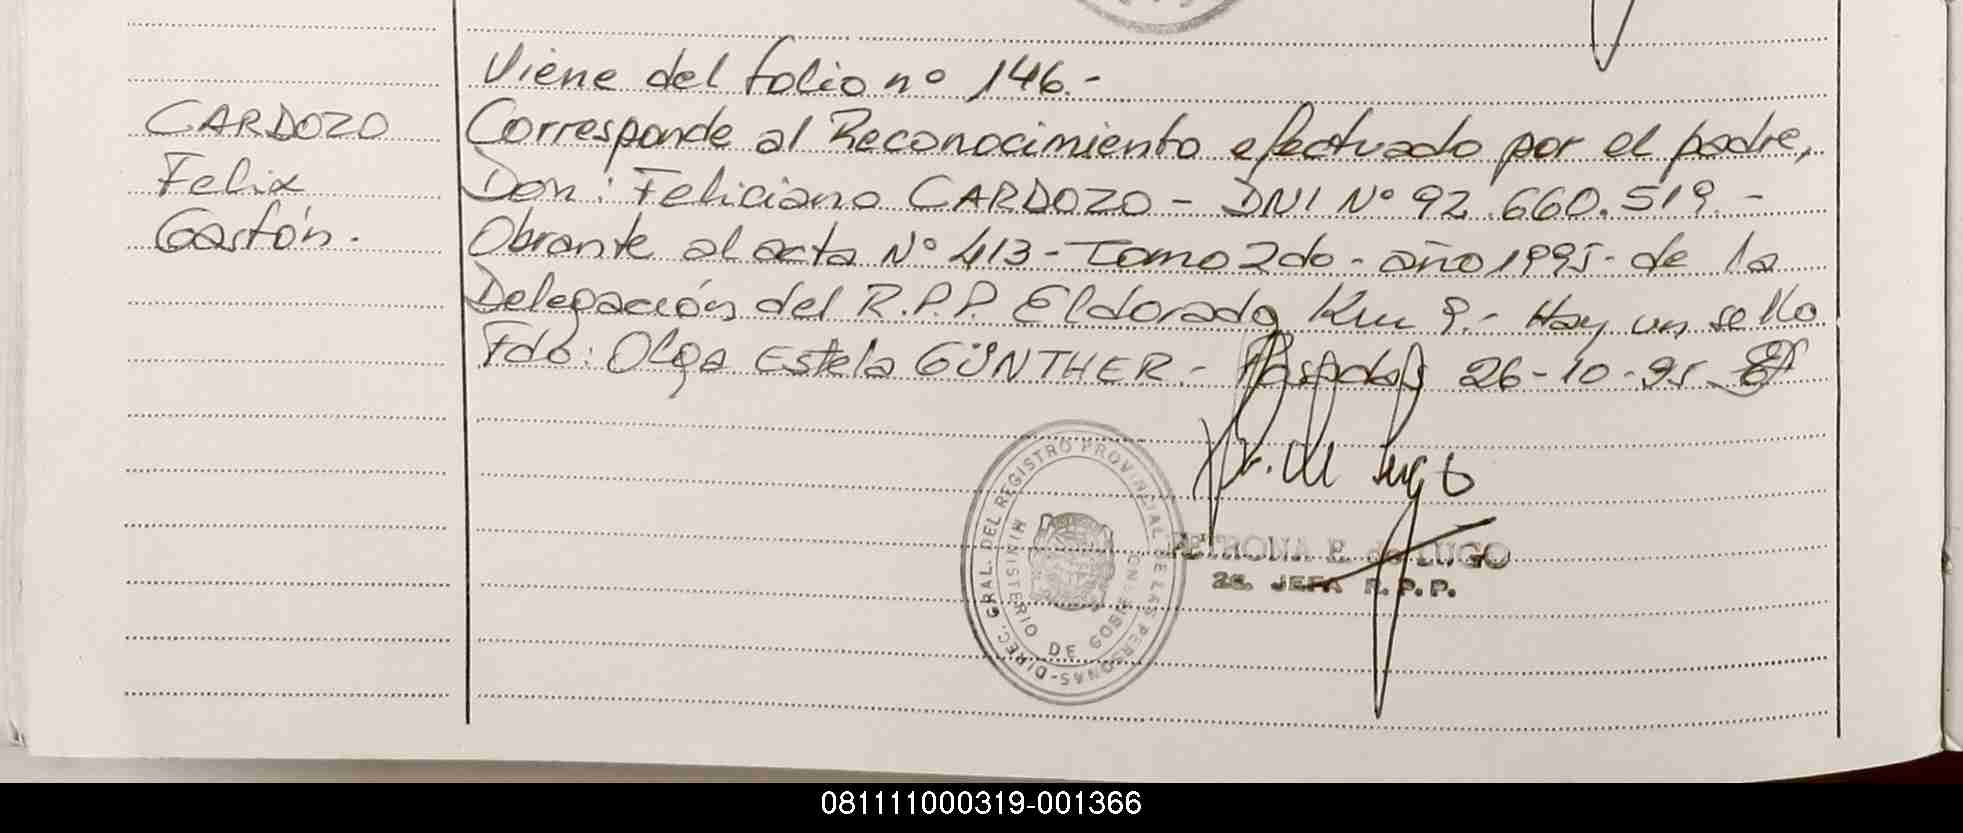 Viene del folio nº 146.-
CARDOZO
Felix
Gastón.
Corresponde al Reconocimiento efectuado por el padre,
Don: Feliciano CARDOZO - DNI Nº 92.660.519.-
Obrante al acta Nº 413 - Tomo 2do - año 1995 - de la
Delegación del R.P.P. Eldorado Km 9.- Hay un sello
Fdo: Olga Estela GÜNTHER.- Posadas 26-10-95
DIREC. GRAL. DEL REGISTRO PROVINCIAL DE LAS PERSONAS-
MINISTERIO DE GOBIERNO
de Lugo
PETRONA E. de LUGO
2a. JEFA R.P.P.
081111000319-001366